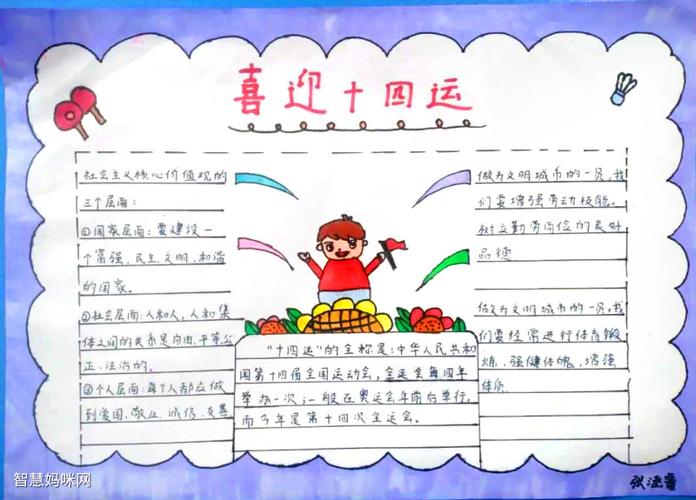 喜迎十四运
社会主义核心价值观的
三个层面:
①国家层面:要建设一
个富强、民主、文明、和谐
的国家。
②社会层面:人和人,人和集
体之间的关系是自由、平等、公
正、法治的。
③个人层面:每个人都应做
到爱国、敬业、诚信、友善
"十四运"的全称是:中华人民共和
国第十四届全国运动会,全运会每四年
举办一次,一般在奥运会年前后举行。
而今年是第十四次全运会。
做为文明城市的一员,我
们要增强劳动技能。
树立勤劳尚俭的良好
品德
做为文明城市的一员,我
们要经常进行体育锻
炼,强健体魄,增强
体质
智慧妈咪网
张